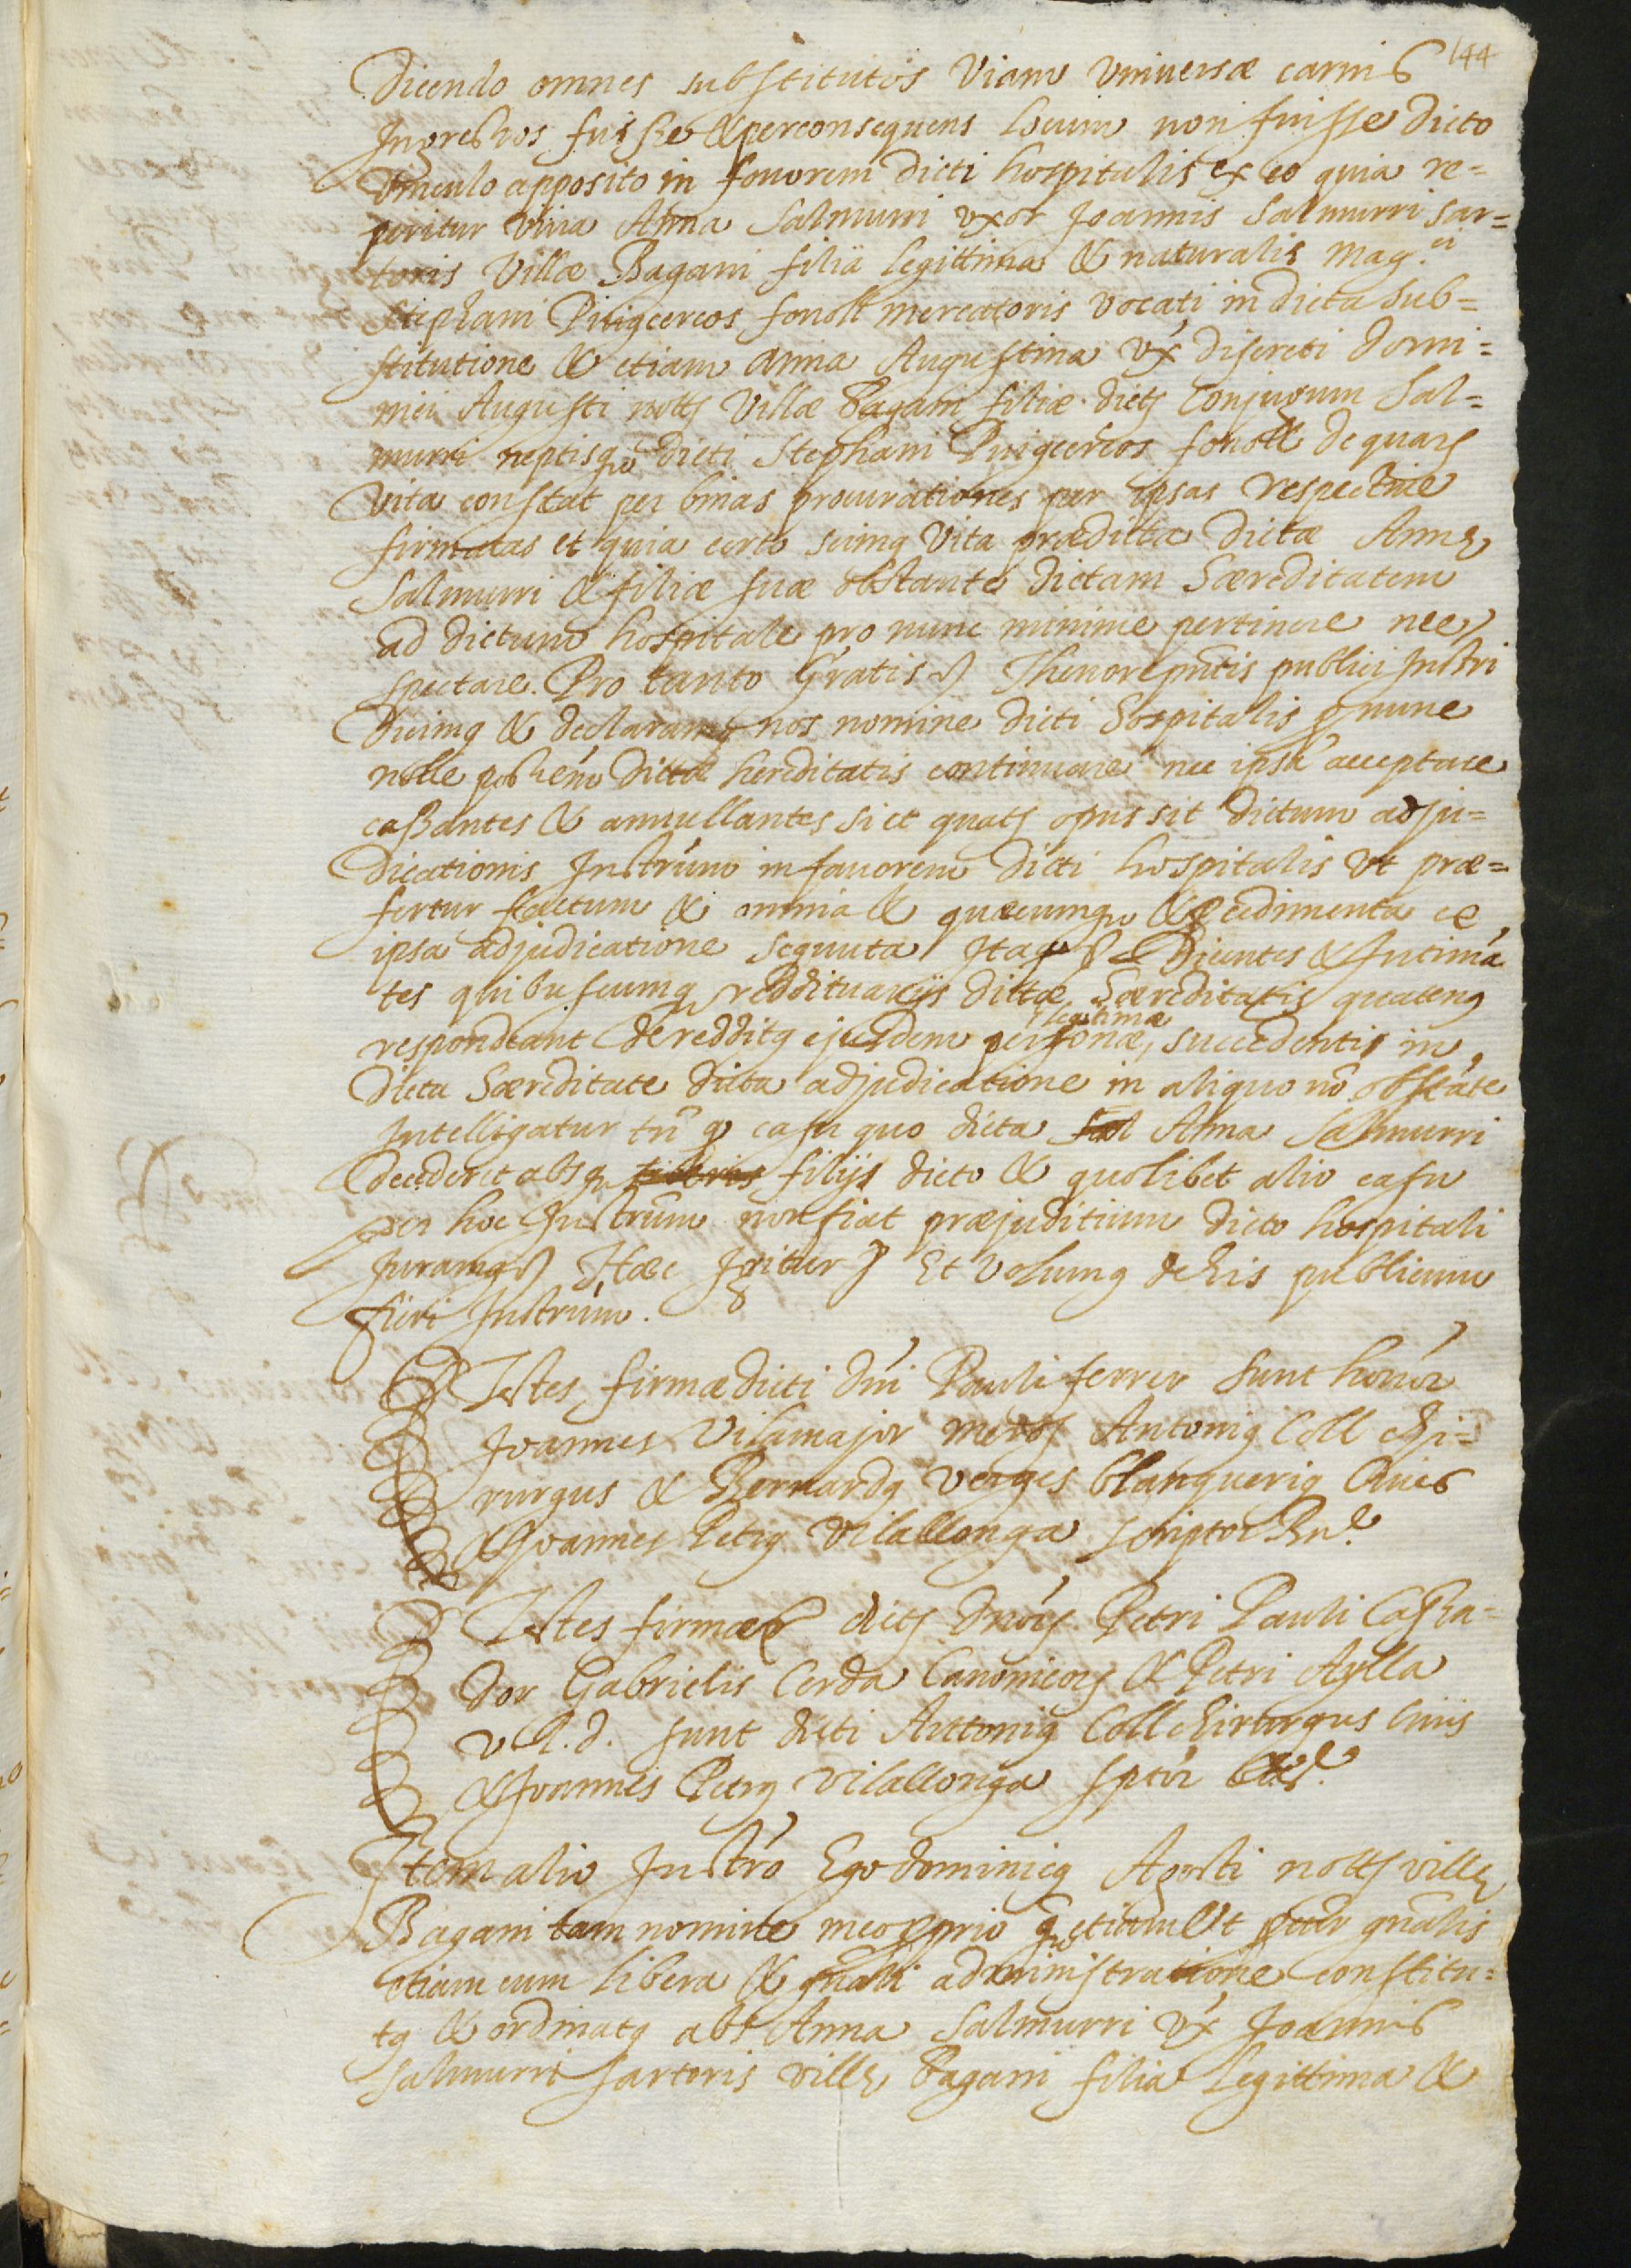 144
Dicendo omnes substitutos viam universæ carnis
Ingressos fuisse & perconsequens locum non fuisse dicto
vinculo apposito in favorem dicti hospitalis ex eo quia re=
peritur viva Anna Salmurri uxor Joannis Salmurri sar=
toris Villæ Bagani filia legittima & naturalis Mag.ci
Stephani Puigcercos fonoll mercatoris vocati in dicta sub=
stitutione & etiam Anna Augustina ux discreti Domi=
nici Augusti notts Villæ Bagani filiæ dicts Conjugum Sal=
murri neptisq dicti Stephani Puigcercos fonoll de quars
vita constat per binas procurationes per ipsas respective
firmatas et quia certo scimq vita prædicta dictæ Annę
Salmurri & filiæ suæ obstante dictam Hæreditatem
ad dictum hospitale pro nunc minime pertinere nec
spectare. Pro tanto Gratis & Thenore pntis publici Instri
Dicimq & declaramq nos nomine dicti Hospitalis p nunc
nolle possem dictæ hereditatis continuare nec ipsa acceptare
cassantes & annullantes si et quats opus sit dictum adju=
dicationis Instrum in favorem dicti hospitalis ut præ=
fertur factum & omnia & quæcumq & pcedimenta ex
ipsa adjudicatione sequuta Itaq & Dicentes & Intimā
tes quibuscumq reddituarijs dictæ Hæreditatis quatenq
respondeant de redditq ejusdem personæ legitimæ succedentis in
dicta Hæreditate dicta adjudicatione in aliquo nō obstāte
Intelligatur tn q casu quo dicta Anna Salmurri
decederet absq filijs dicto & quolibet alio casu
per hoc Instrum non fiat præjuditium dicto hospitali
Juramq & Hæc Igitur & Et volumq de his publicum
fieri Instrum.
Testes firmæ dicti Dni Pauli ferrer sunt honor
Joannes Vilamajor Antoniq Coll chi=
rurgus & Bernardq verges blanqueriq Cives
& Joannes Petrq Vilallonga scriptor
Testes firmar dicts Dnors Petri Pauli Cassa=
dor Gabrielis Cerda Canonicors & Petri Aylla
V.I.d. sunt dicti Antoniq Coll chirurgus Civis
& Joannes Petrq Vilallonga sptor
Item alio Instro Ego dominicq Agosti notts villę
Bagani tam nomine meo pprio q etiam Ut pcur gnalis
etiam cum libera & gnali administratione constitu=
tq & ordinatq abs Anna Salmurri ux Joannis
Salmurri sartoris villę Bagani filia legittima &